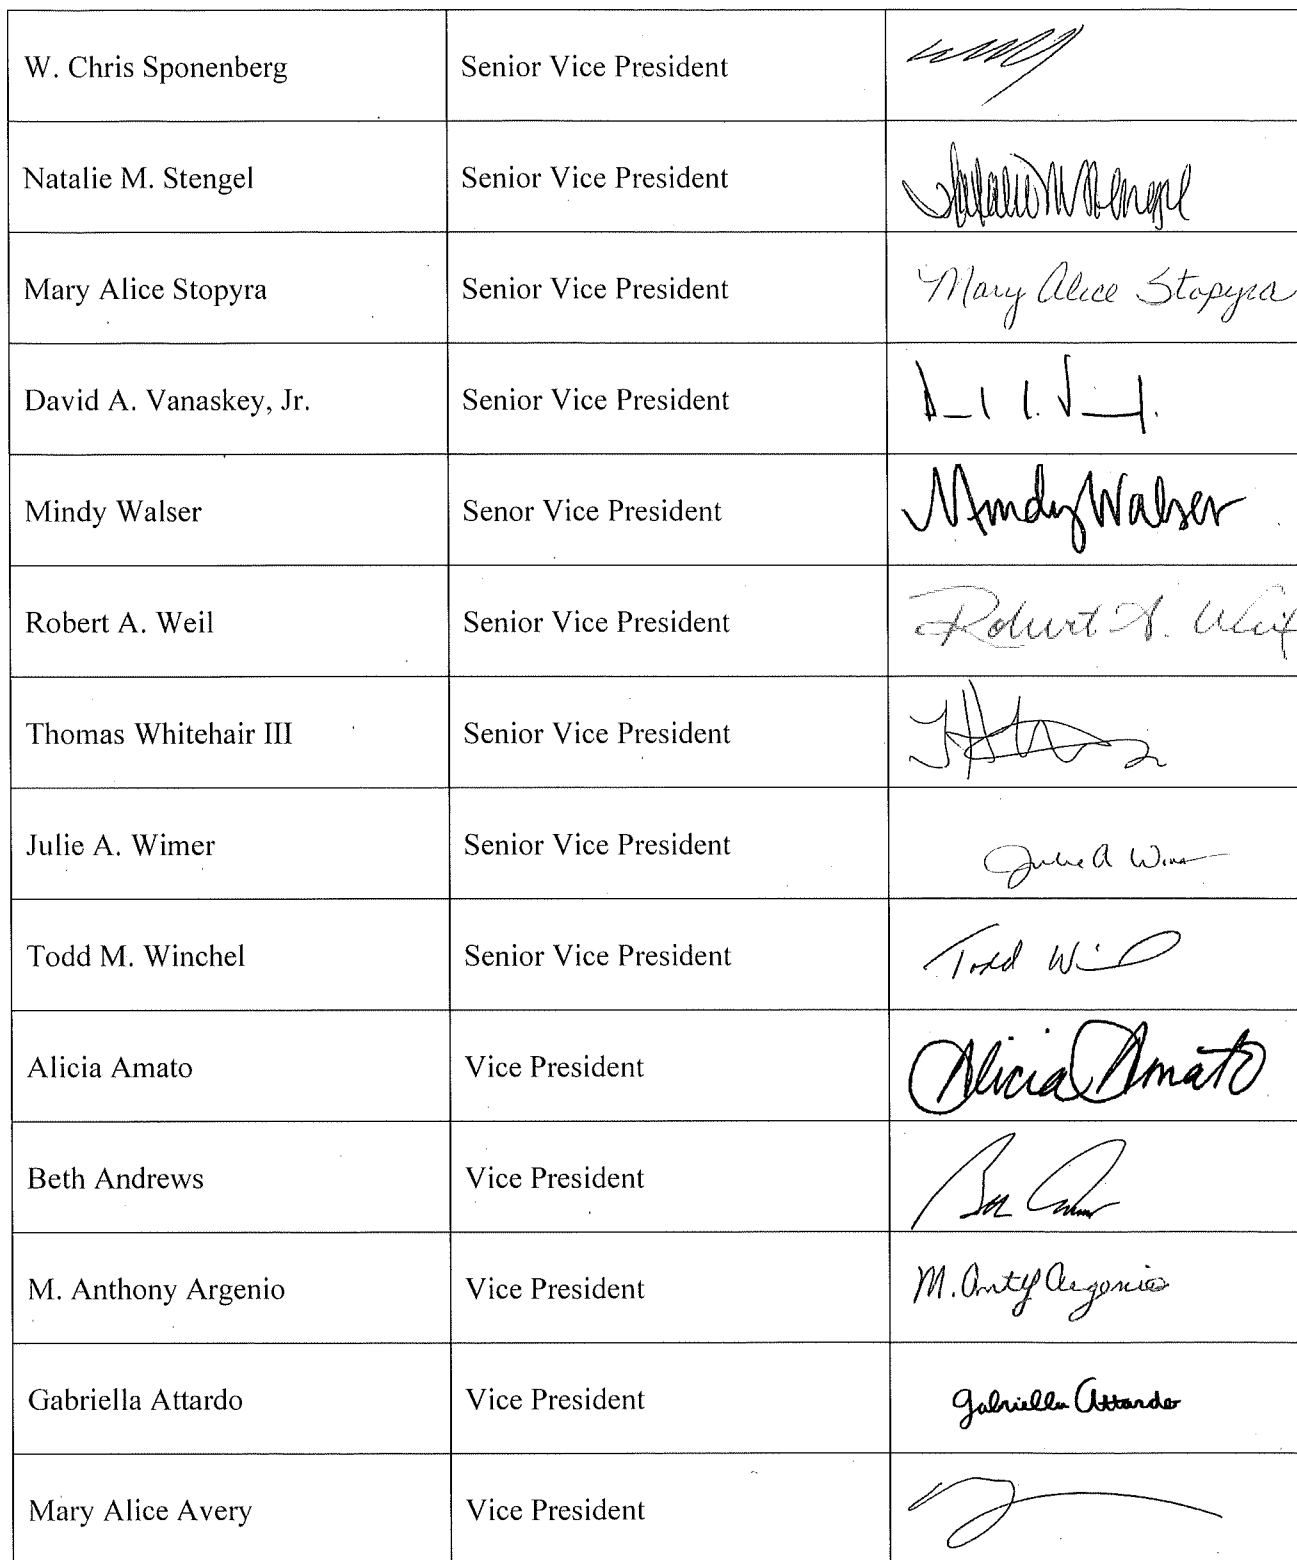 W. Chris Sponenberg Senior Vice President
Natalie M. Stengel Senior Vice President Natalie M Stengel
Mary Alice Stopyra Senior Vice President Mary Alice Stopyra
David A. Vanaskey, Jr. Senior Vice President
Mindy Walser Senor Vice President Mindy Walser
Robert A. Weil Senior Vice President Robert A. Weil
Thomas Whitehair III Senior Vice President
Julie A. Wimer Senior Vice President Julie A
Todd M. Winchel Senior Vice President Todd
Alicia Amato Vice President Alicia Amato
Beth Andrews Vice President
M. Anthony Argenio Vice President M. Argenio
Gabriella Attardo Vice President Gabriella Attardo
Mary Alice Avery Vice President